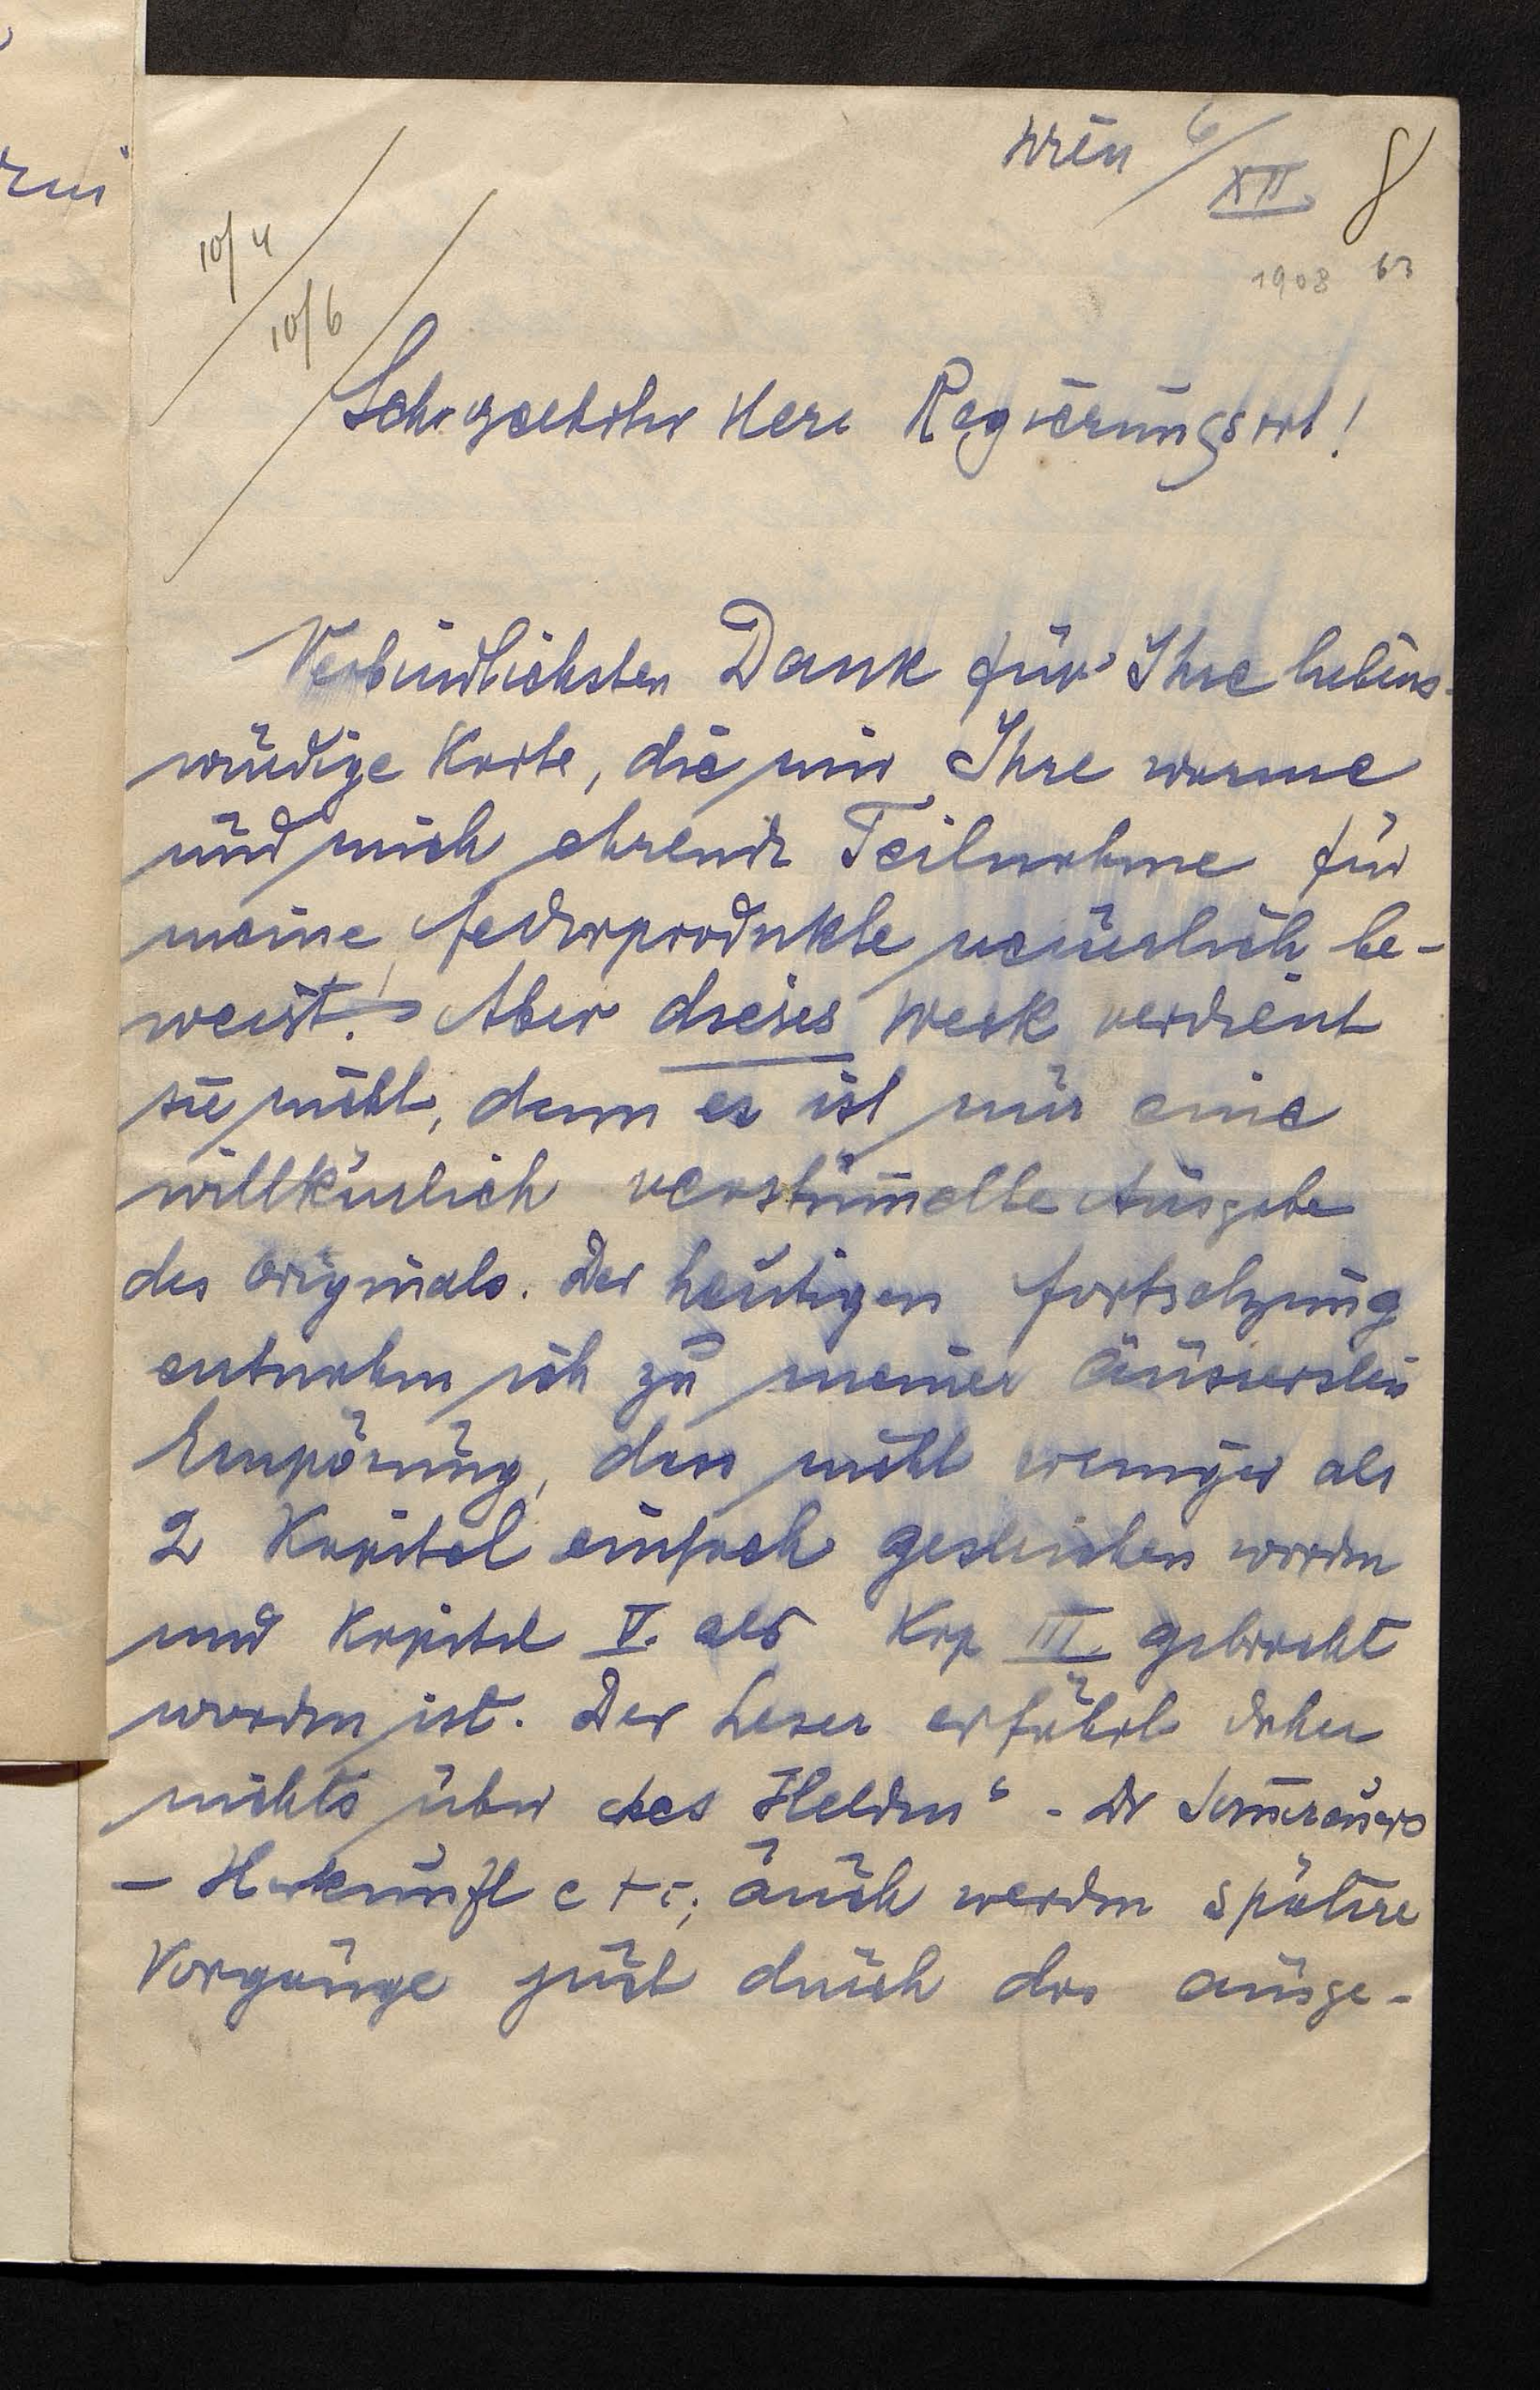 Wien 6/XII. 8
1908 63
10/4
10/6
Sehr geehrter Herr Regierungsrat!
Verbindlichsten Dank für Ihre liebens-
würdige Karte, die mir Ihre warme
und mich ehrende Teilnahme für
meine Federprodukte neuerlich be-
weist. Aber dieses Werk verdient
sie nicht, denn es ist nur eine
willkürlich verstümmelte Ausgabe
des Originals. Der heutigen Fortsetzung
entnahm ich zu meiner äussersten
Empörung, dass nicht weniger als
2 Kapitel einfach gestrichen worden
und Kapitel V. als Kap III. gebracht
worden ist. Der Leser erfährt daher
nichts über des Helden" - Dr
- Herkunft etc; auch werden spätere
Vorgänge just durch das ausge-